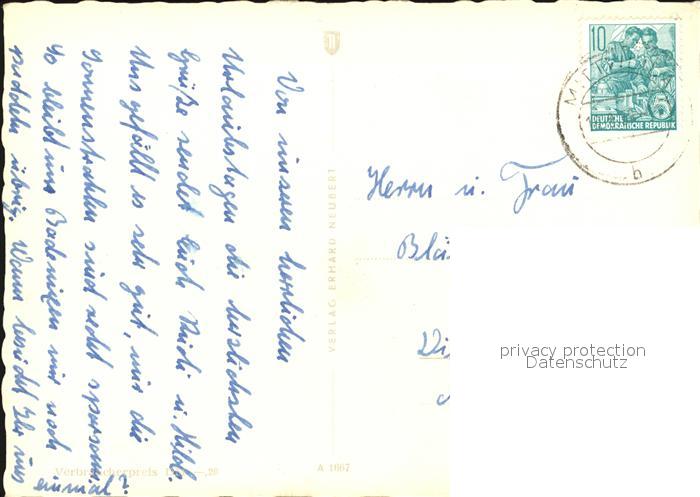 Von unseren herrlichen
Urlaubstagen die herzlichsten
Grüße sendet Euch Rudi u. Hilde.
Uns gefällt es sehr gut, nur die
Sonnenstrahlen sind recht sparsam
So bleibt uns Badenixen nur noch
paddeln übrig. Wann besucht Ihr uns
einmal?
VERLAG ERHARD NEUBERT
Verbraucherpreis —,20
A 1667
10
DEUTSCHE
DEMOKRATISCHE REPUBLIK
5
b
Herrn u. Frau
privacy protection
Datenschutz